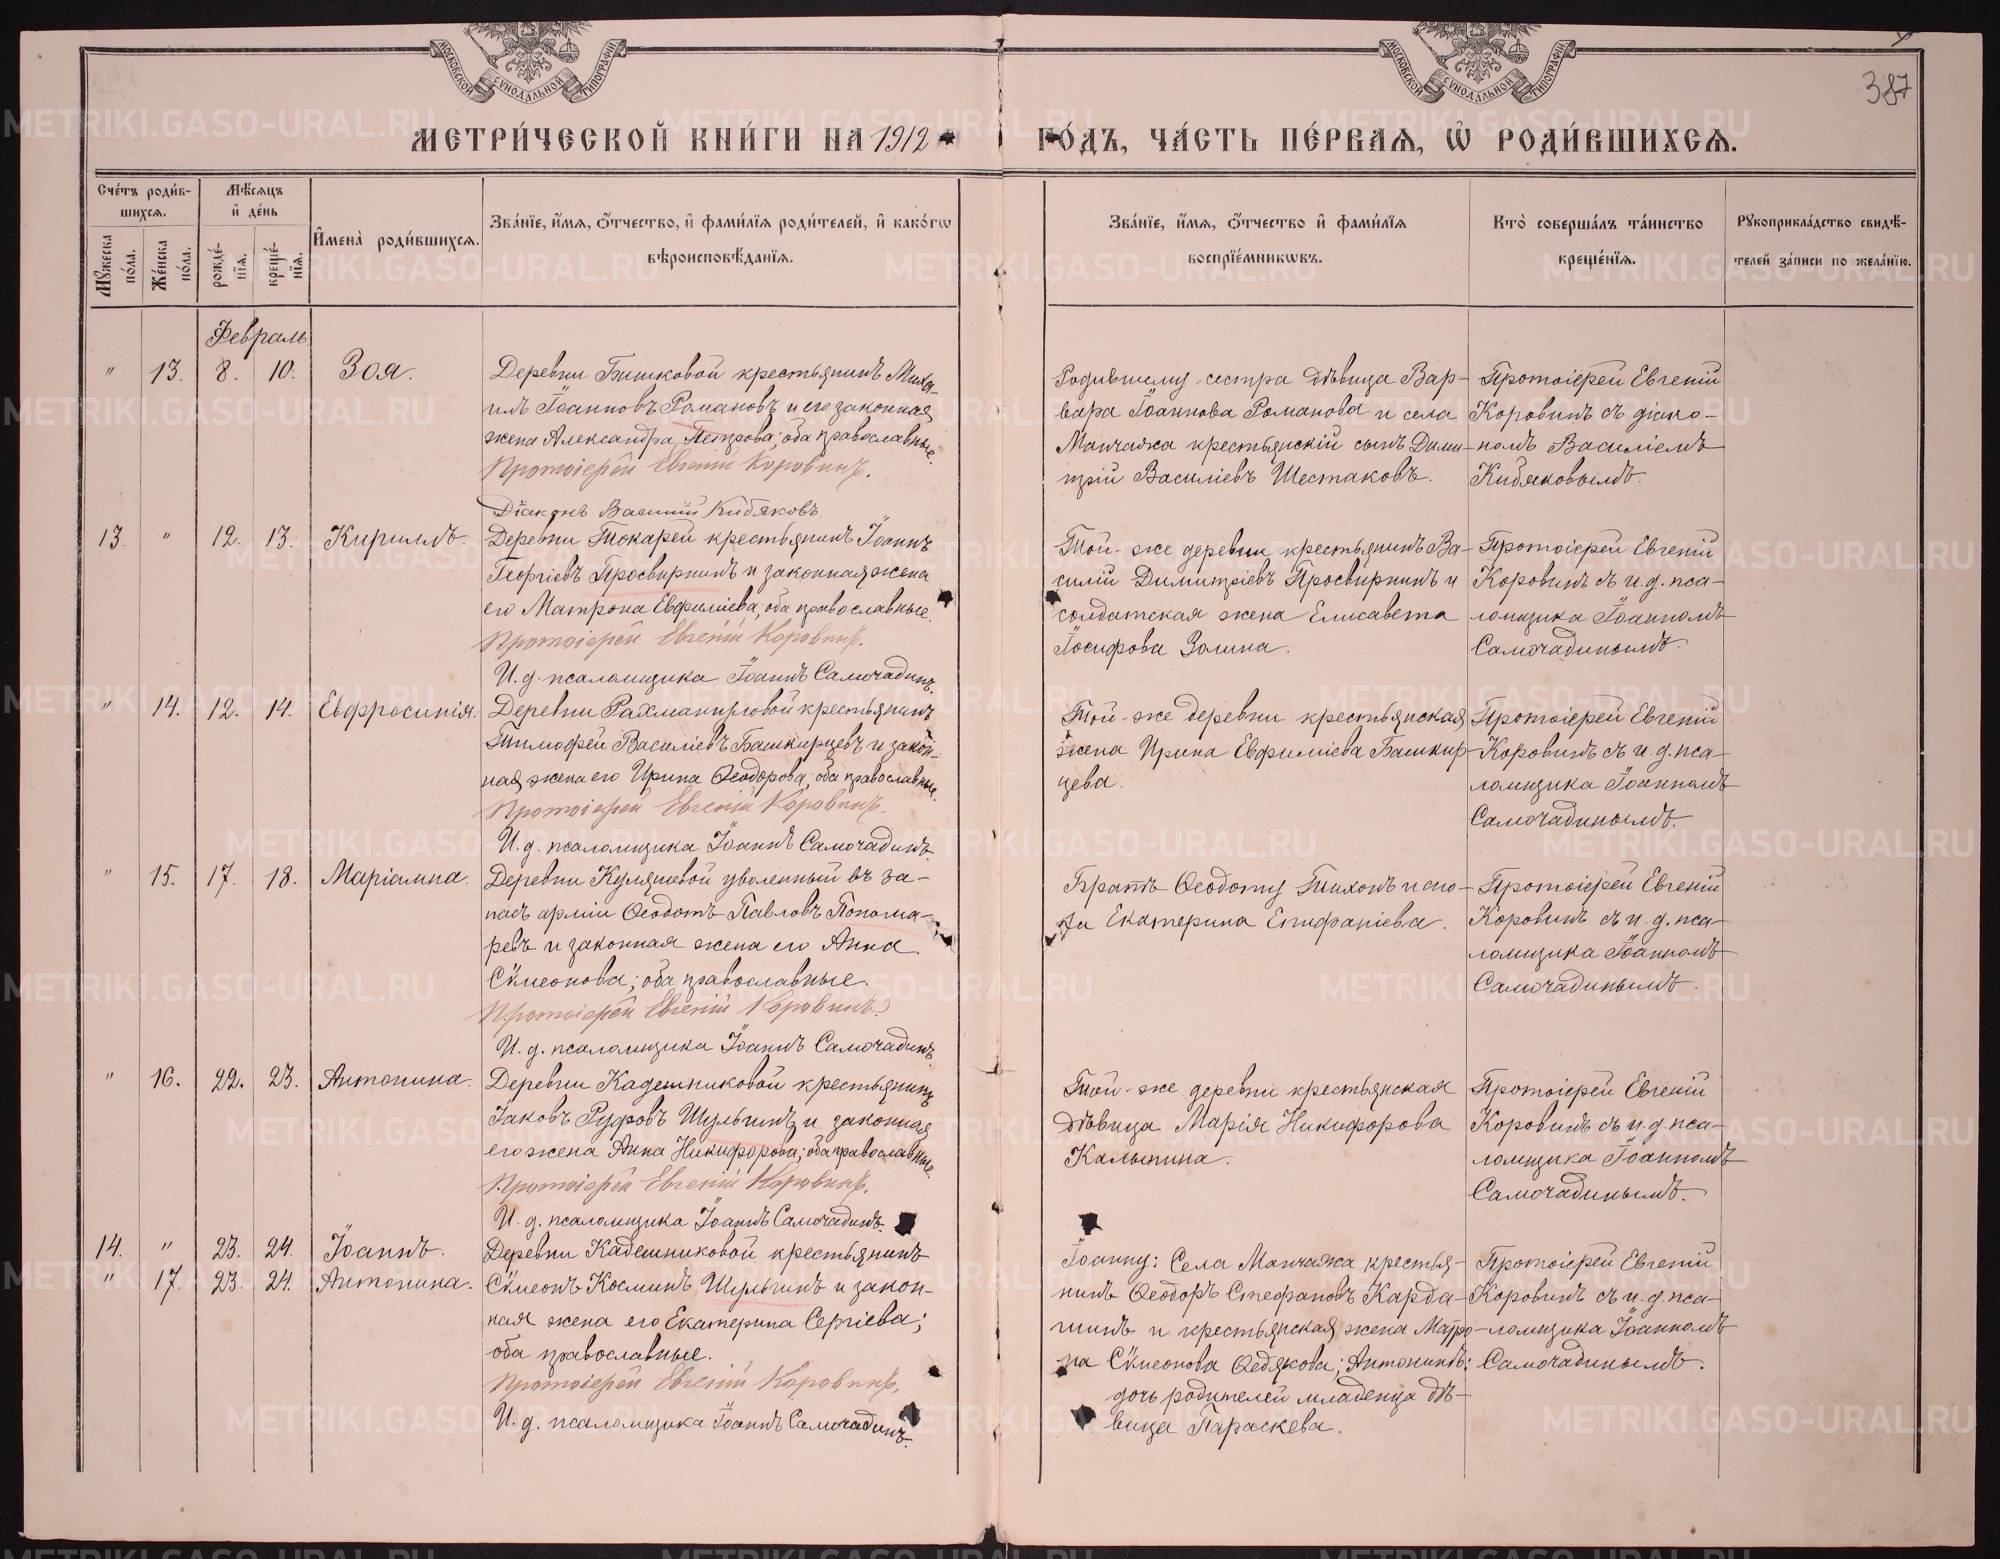 МОСКОВСКОЙ СѴНОДАЛЬНОЙ ТИПОГРАФІИ
МОСКОВСКОЙ СѴНОДАЛЬНОЙ ТИПОГРАФІИ
387
МЕТРИ́ЧЕСКОЙ КНИ́ГИ НА 1912
ГО́ДЪ, ЧА́СТЬ ПЕ́РВАѦ, Ѡ҆ РОДИ́ВШИХСѦ.
Сче́тъ роди́в-
шихсѧ.
Мꙋ́жеска по́ла.
Же́нска по́ла.
Мѣ́сѧцъ
и҆ де́нь
рожде́-
нїѧ.
креще́-
нїѧ.
И҆мена̀ роди́вшихсѧ.
Зва́нїе, и҆́мѧ, ѻ҆́тчество, и҆ фами́лїѧ роди́телей, и҆ како́гѡ
вѣроисповѣ́данїѧ.
Зва́нїе, и҆́мѧ, ѻ҆́тчество и҆ фами́лїѧ
воспрїе́мникѡвъ.
Кто̀ соверша́лъ та́инство
креще́нїѧ.
Рꙋкоприкла́дство свидѣ́-
телей за́писи по жела́нїю.
Февраль
" 13. 8. 10. Зоя.
Деревни Бишковой крестьянинъ Миха-
илъ Іоанновъ Романовъ и его законная
жена Александра Петрова; оба православные.
Протоіерей Евгеній Коровинъ.
Діаконъ Василій Кибяковъ.
Родившему сестра дѣвица Вар-
вара Іоаннова Романова и села
Манчажа крестьянскій сынъ Дими-
трій Василіевъ Шестаковъ.
Протоіерей Евгеній
Коровинъ съ діако-
номъ Василіемъ
Кибяковымъ.
13. " 12. 13. Кириллъ.
Деревни Токарей крестьянинъ Іоаннъ
Георгіевъ Просвирнинъ и законная жена
его Матрона Евфиміева, оба православные.
Протоіерей Евгеній Коровинъ.
И. д. псаломщика Іоаннъ Самочадинъ.
Той-же деревни крестьянинъ Ва-
силій Димитріевъ Просвирнинъ и
солдатская жена Елисавета
Іосифова Золина.
Протоіерей Евгеній
Коровинъ съ и. д. пса-
ломщика Іоанномъ
Самочадинымъ.
" 14. 12. 14. Евфросинія.
Деревни Рахмангуловой крестьянинъ
Тимофей Василіевъ Башкирцевъ и закон-
ная жена его Ирина Ѳеодорова, оба православные.
Протоіерей Евгеній Коровинъ.
И. д. псаломщика Іоаннъ Самочадинъ.
Той-же деревни крестьянская
жена Ирина Евфиміева Башкир-
цева.
Протоіерей Евгеній
Коровинъ съ и. д. пса-
ломщика Іоанномъ
Самочадинымъ.
" 15. 17. 18. Маріамна.
Деревни Куляшевой уволенный въ за-
пасъ арміи Ѳеодотъ Павловъ Понома-
ревъ и законная жена его Анна
Сѵмеонова; оба православные.
Протоіерей Евгеній Коровинъ.
И. д. псаломщика Іоаннъ Самочадинъ.
Братъ Ѳеодоту Тихонъ и сно-
ха Екатерина Епифаніева.
Протоіерей Евгеній
Коровинъ съ и. д. пса-
ломщика Іоанномъ
Самочадинымъ.
" 16. 22. 23. Антонина.
Деревни Кадешниковой крестьянинъ
Іаковъ Руфовъ Шульгинъ и законная
его жена Анна Никифорова; оба православные.
Протоіерей Евгеній Коровинъ.
И. д. псаломщика Іоаннъ Самочадинъ.
Той-же деревни крестьянская
дѣвица Марія Никифорова
Калынина.
Протоіерей Евгеній
Коровинъ съ и. д. пса-
ломщика Іоанномъ
Самочадинымъ.
14. " 23. 24. Іоаннъ.
" 17. 23. 24. Антонина.
Деревни Кадешниковой крестьянинъ
Сѵмеонъ Косминъ Шульгинъ и закон-
ная жена его Екатерина Сергіева;
оба православные.
Протоіерей Евгеній Коровинъ.
И. д. псаломщика Іоаннъ Самочадинъ.
Іоанну: Села Манчажа крестья-
нинъ Ѳеодоръ Стефановъ Карда-
шинъ и крестьянская жена Матро-
на Сѵмеонова Ѳедякова; Антонинѣ:
дочь родителей младенца дѣ-
вица Параскева.
Протоіерей Евгеній
Коровинъ съ и. д. пса-
ломщика Іоанномъ
Самочадинымъ.
METRIKI.GASO-URAL.RU